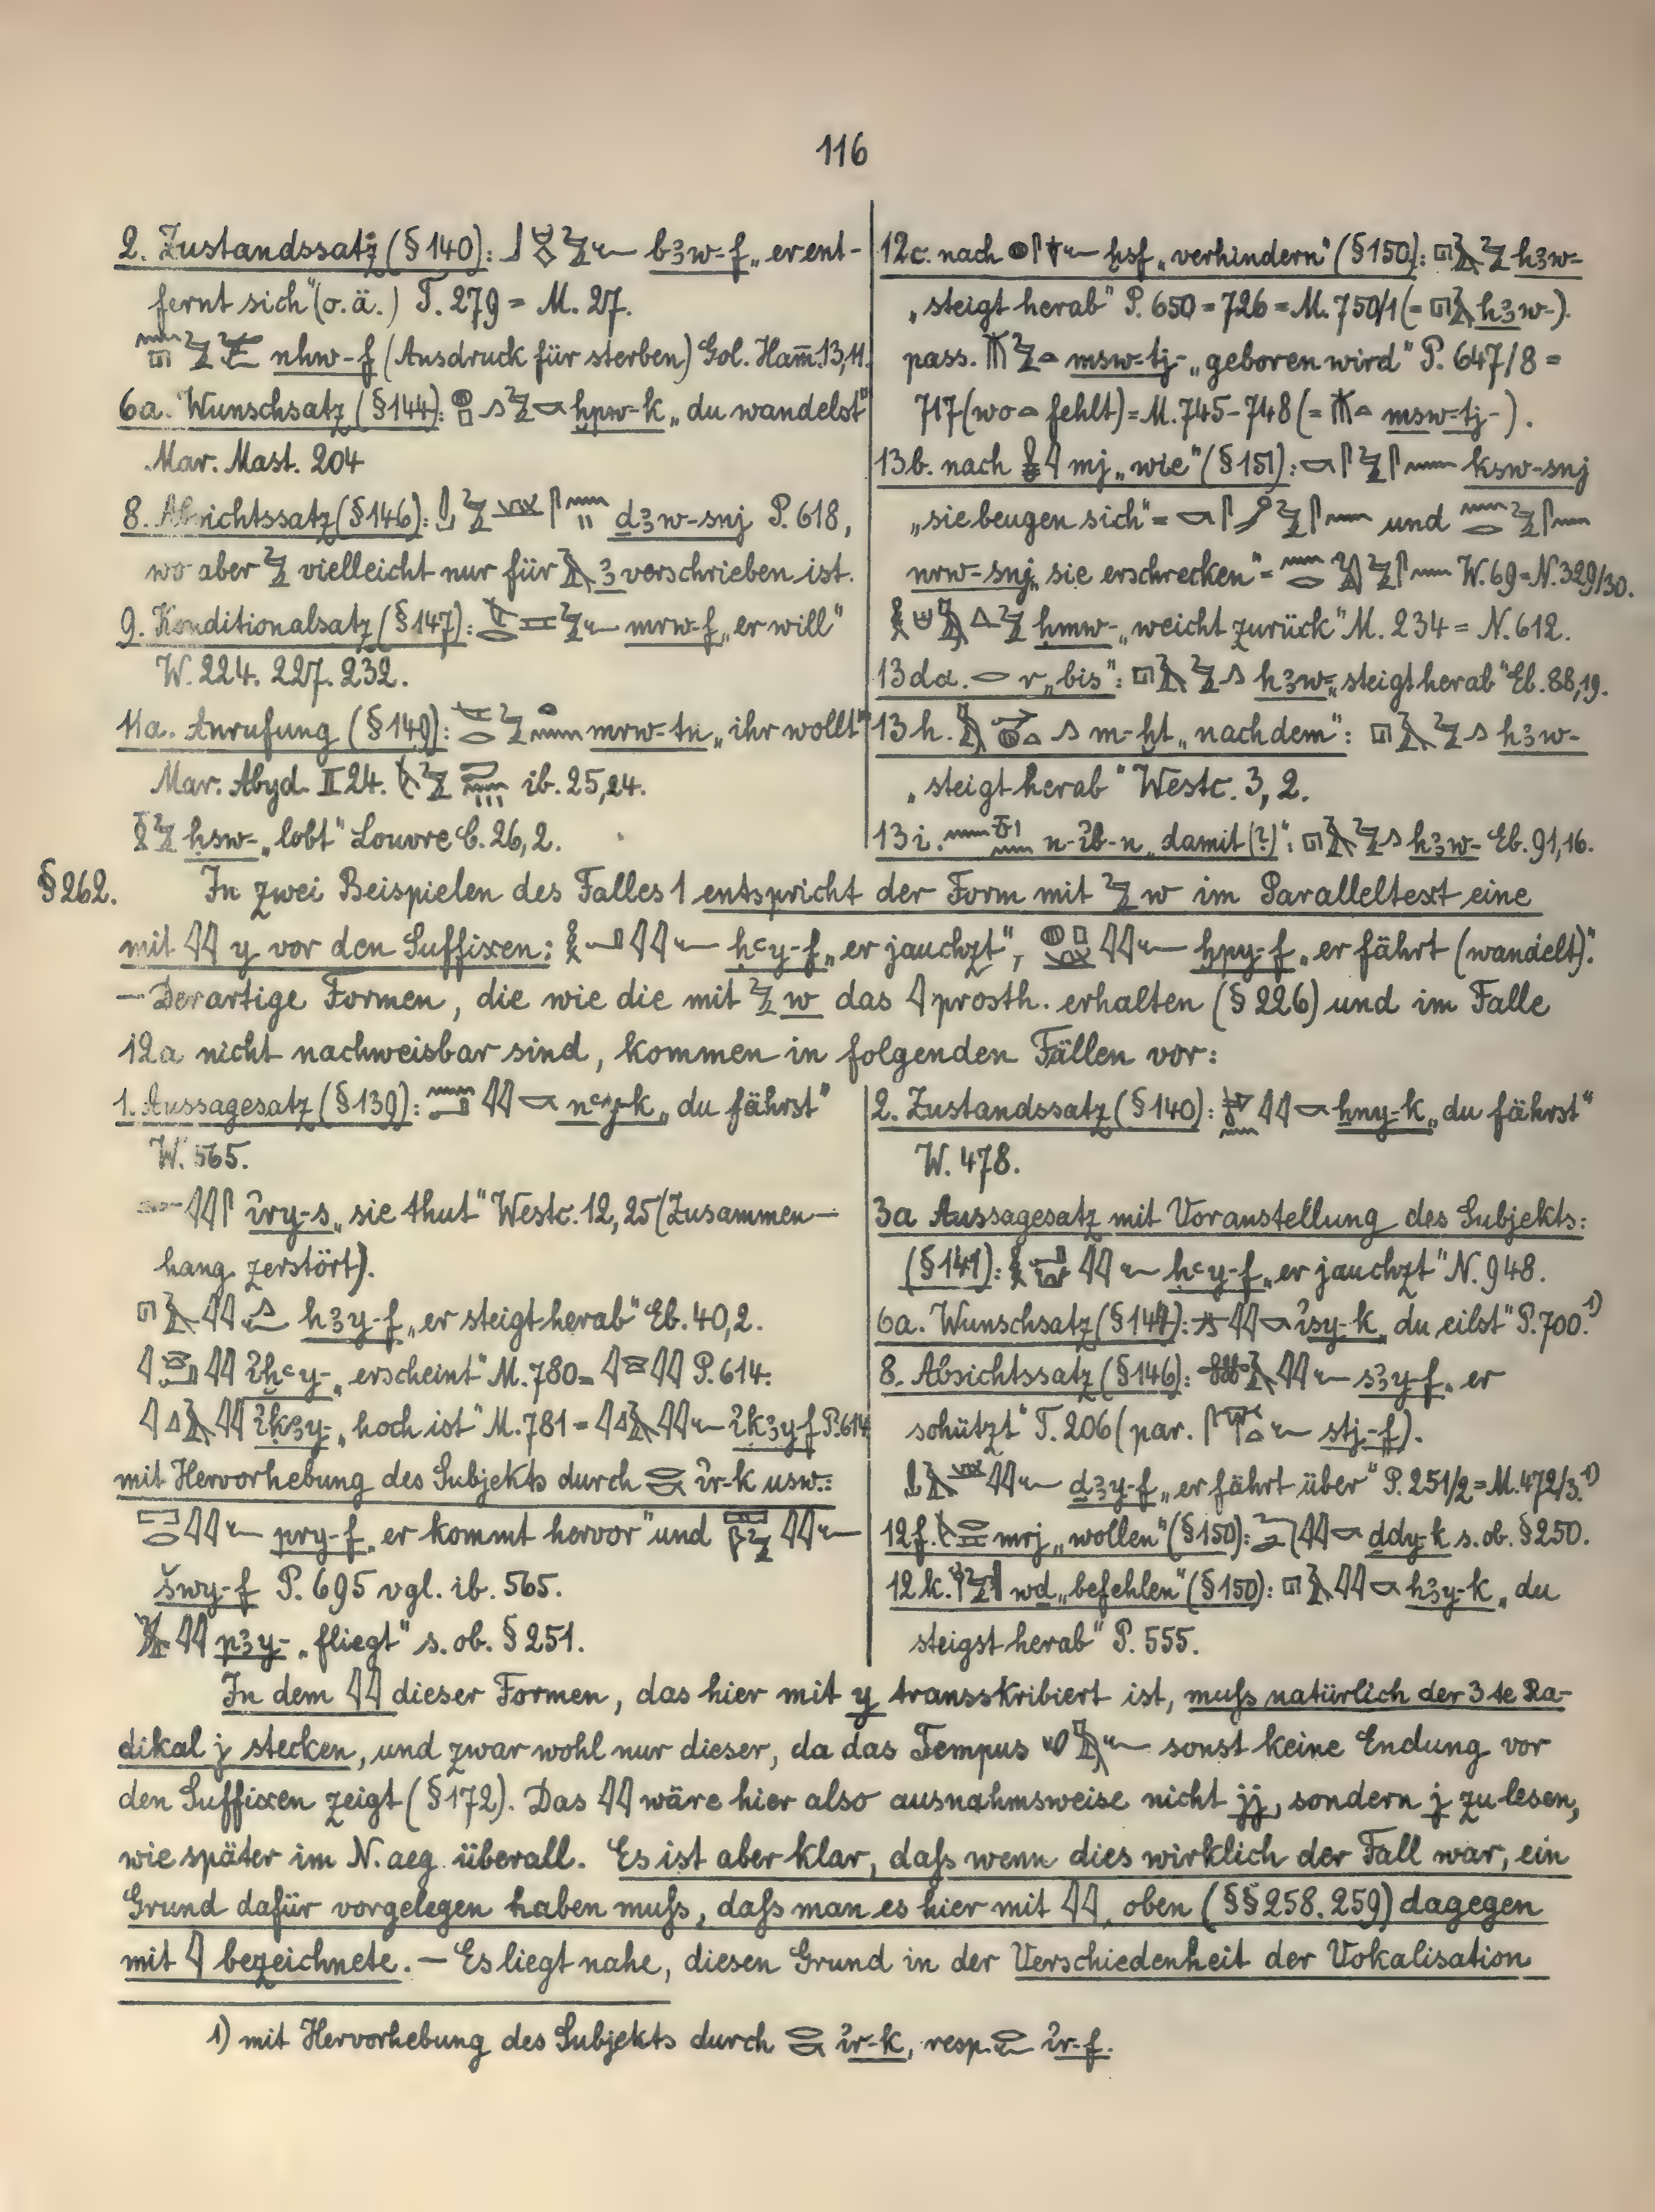 116
2. Zustandssatz (§ 140): b3w-f „er ent-
fernt sich“ (o.ä.) T. 279 = M. 27.
nhw-f (Ausdruck für sterben) Gol. Hamm. 13,11.
6a. Wunschsatz (§ 144): ḫpw-k „du wandelst“
Mar. Mast. 204
8. Absichtssatz (§ 146): d3w-snj P. 618,
wo aber vielleicht nur für 3 verschrieben ist.
9. Konditionalsatz (§ 147): mrw-f „er will“
W. 224. 227. 232.
11a. Anrufung (§ 149): mrw-tn „ihr wollt“
Mar. Abyd. II 24. ib. 25,24.
ḥsw- „lobt“ Louvre C. 26,2.
12c. nach ḫsf „verhindern“ (§ 150): h3w-
„steigt herab“ P. 650 = 726 = M. 750/1 (= h3w-).
pass. msw-tj- „geboren wird“ P. 647/8 =
717 (wo fehlt) = M. 745-748 (= msw-tj-).
13b. nach mj „wie“ (§ 151): ksw-snj
„sie beugen sich“ = und
nrw-snj „sie erschrecken“ = W. 69 = N. 329/30.
ḥmw- „weicht zurück“ M. 234 = N. 612.
13da. r „bis“: h3w- „steigt herab“ Eb. 88,19.
13h. m-ḫt „nachdem“: h3w-
„steigt herab“ Westc. 3, 2.
13i. n-ib-n „damit (?)“: h3w- Eb. 91,16.
§ 262. In zwei Beispielen des Falles 1 entspricht der Form mit w im Paralleltext eine
mit y vor den Suffixen: ḥꜥy-f „er jauchzt“, ḫpy-f „er fährt (wandelt)“.
— Derartige Formen, die wie die mit w das prosth. erhalten (§ 226) und im Falle
12a nicht nachweisbar sind, kommen in folgenden Fällen vor:
1. Aussagesatz (§ 139): nꜥy-k „du fährst“
W. 565.
iry-s „sie thut“ Westc. 12,25 (Zusammen-
hang zerstört).
h3y-f „er steigt herab“ Eb. 40,2.
iḫꜥy- „erscheint“ M. 780 = P. 614.
iḳ3y- „hoch ist“ M. 781 = iḳ3y-f P. 614
mit Hervorhebung des Subjekts durch ir-k usw.:
pry-f „er kommt hervor“ und
šwy-f P. 695 vgl. ib. 565.
p3y- „fliegt“ s. ob. § 251.
2. Zustandssatz (§ 140): ḫny-k „du fährst“
W. 478.
3a Aussagesatz mit Voranstellung des Subjekts:
(§ 141): ḥꜥy-f „er jauchzt“ N. 948.
6a. Wunschsatz (§ 144): isy-k „du eilst“ P. 700.¹)
8. Absichtssatz (§ 146): s3y-f „er
schützt“ T. 206 (par. stj-f).
d3y-f „er fährt über“ P. 251/2 = M. 472/3.¹)
12f. mrj „wollen“ (§ 150): ḏdy-k s. ob. § 250.
12k. wd „befehlen“ (§ 150): h3y-k „du
steigst herab“ P. 555.
In dem dieser Formen, das hier mit y transskribiert ist, muſs natürlich der 3te Ra-
dikal j stecken, und zwar wohl nur dieser, da das Tempus sonst keine Endung vor
den Suffixen zeigt (§ 172). Das wäre hier also ausnahmsweise nicht jj, sondern j zu lesen,
wie später im N. aeg. überall. Es ist aber klar, daſs wenn dies wirklich der Fall war, ein
Grund dafür vorgelegen haben muſs, daſs man es hier mit , oben (§§ 258. 259) dagegen
mit bezeichnete. — Es liegt nahe, diesen Grund in der Verschiedenheit der Vokalisation
1) mit Hervorhebung des Subjekts durch ir-k, resp. ir-f.